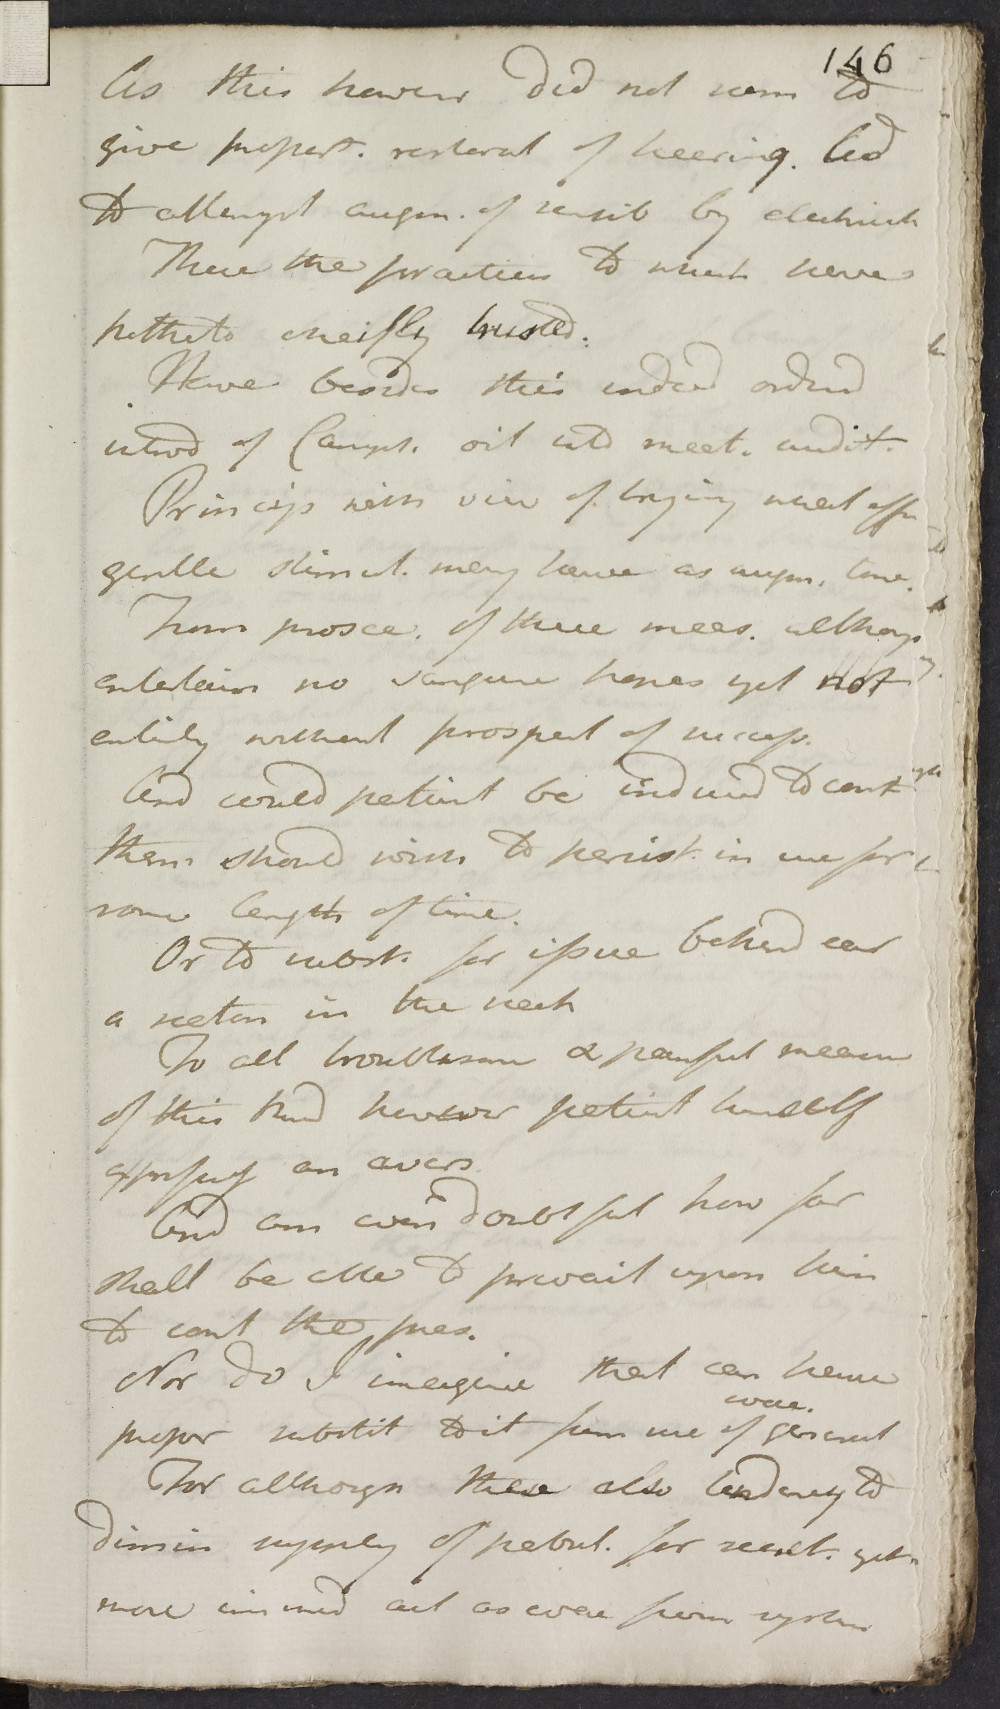 146
As this however did not seem to
give prospect. restorat of heering. led
to attempt augm. of sensib by electricit
These the practices to which have
hitherto cheifly trusted.
Have besides this indeed ordered
introd of Camph. oil into meat. audit.
Princip with view of trying what effec
gentle stimul. may have as augm. tone.
From prosec. of these meas. althoug
entertain no sanguine hopes yet not
entirely without prospect of success.
And could patient be induced to cont
them should wish to persist in use for
some length of time.
Or to subst. for issue behind ear
a seton in the neck
To all troublesome & painful measu
of this kind however patient himself
express an avers
And am even doubtful how far
shall be able to prevail upon him
to cont the pres.
Nor do I imagine that can have
proper substit to it from use of general
evac.
For although these also tendency to
dimin supply of pabul. for secret. yet
more immed act as evac from system